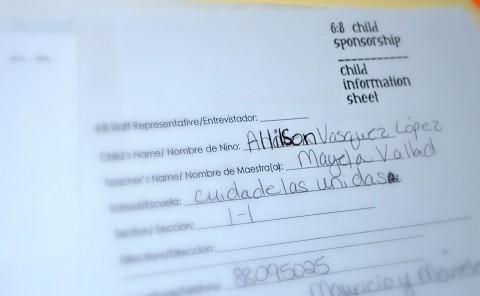 6:8 child
sponsorship
child
information
sheet
6:8 Staff Representative/Entrevistador:
Child's Name/ Nombre de Nino: Allilson Vasquez López
Teacher's Name/ Nombre de Maestra(o): Mayela Vallad
School/Escuela: cuidadelas unidas
Section/ Seccion: 1-1
Directions/Direccion:
88095025
Mauricio y